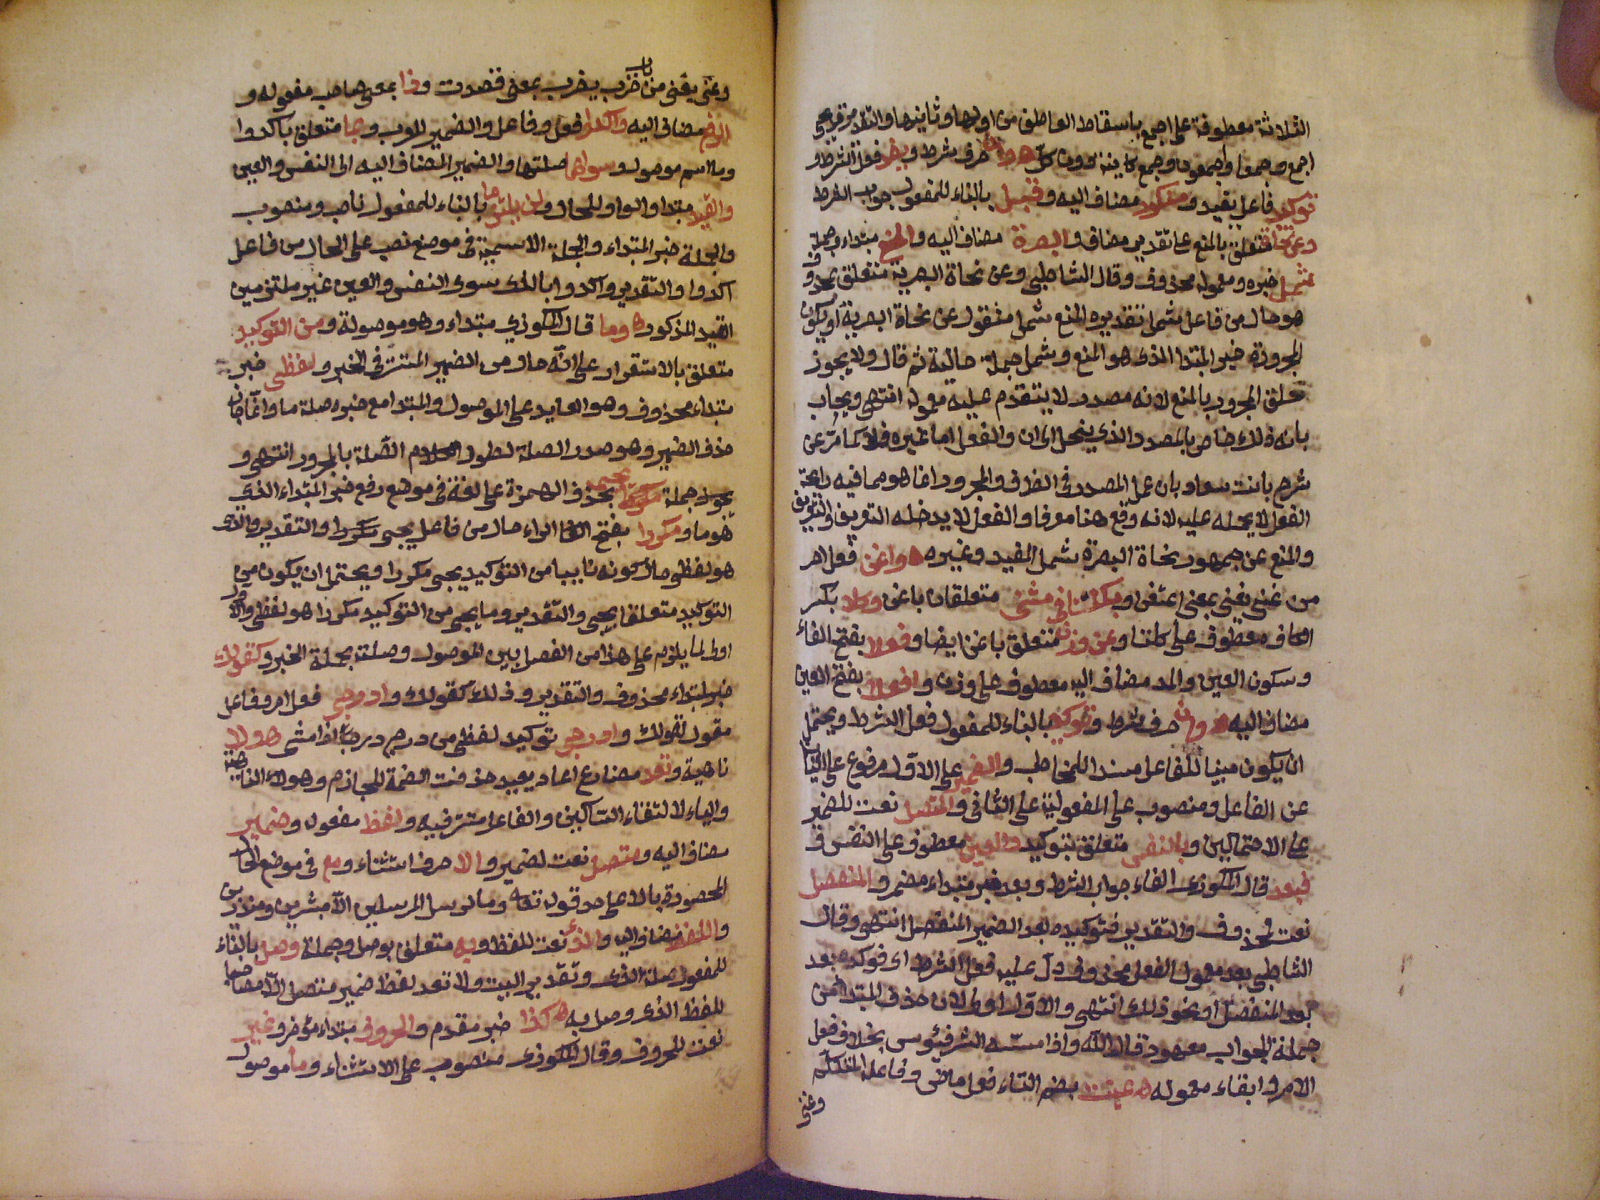 الثلاثة معطوفة على اجمع باسقاط العاطف من اولها وثانيها والتقدير في
اجمع وجمعا واجمعون وجمع كاينة دون كل ه وان حرف شرط ويفد فعل الشرط و
توكيد فاعل يفيد ومنكور مضاف اليه وقبل بالبناء للمفعول جواب الشرط
وعن نحاة متعلق بالمنع على تقدير مضاف والبصرة مضاف اليه والمنع مبتدا وجملة
شمل خبره ومعموله محذوف وقال الشاطبي وعن نحاة البصرية متعلق بمحذوف
هو حال من فاعل شمل تقديره المنع شمل منقول عن نحاة البصرية او يكون
المجرور خبر المبتدا الذي هو المنع وشمل جملة حالية ثم قال ولا يجوز
تعلق المجرور بالمنع لانه مصدر لا يتقدم عليه معموله انتهى ويجاب
بان ذلك خاص بالمصدر الذي ينحل الى ان والفعل اما غيره فلا كما مر عن
شرح بانت سعاد بان عمل المصدر في الظرف والمجرور انما هو مما فيه رائحة
الفعل لا يحمله عليه لانه وقع هنا معرفا والفعل لا يدخله التعريف
والمنع عن جمهور نحاة البصرة شمل المفيد وغيره ه واغن فعل امر
من غني يغنى بمعنى استغنى وبكلتا في مثنى متعلقان باغن وكلا بكسر
الكاف معطوف على كلتا وعن وزن متعلق باغن ايضا وفعلا بفتح الفاء
وسكون العين والمد مضاف اليه معطوف على وزن وافعلا بفتح العين
مضاف اليه ه وان حرف شرط وتوكيد بالبناء للمفعول فعل الشرط ويحتمل
ان يكون مبنيا للفاعل مسندا للمخاطب والضمير على الاول مرفوع على النيابة
عن الفاعل ومنصوب على المفعولية على الثاني والمتصل نعت للضمير
على الاحتمالين وبالنفس متعلق بتوكيد والعين معطوف على النفس ف
فبعد قال المكودي الفاء جواب الشرط وبعد خبر مبتداء مضمر والمنفصل
نعت لمحذوف والتقدير فتوكيده بعد الضمير المنفصل انتهى وقال
الشاطبي بعد معمول الفعل محذوف دل عليه فعل الشرط اي فوكده بعد
بعد المنفصل او نحو ذلك انتهى والاول اولى لان حذف المبتدا من
جملة الجواب معهود قال الله واذا مسه الشر فيئوس بخلاف فعل
الامر وابقاء معموله ه عنيت بضم التاء فعل ماض وفاعله المتكلم
وعنى
وعنى يعنى من باب ضرب يضرب بمعنى قصدت وذا بمعنى صاحب مفعوله و
الرفع مضاف اليه واكدوا فعل وفاعل والضمير للعرب وبما متعلق باكدوا
وما اسم موصول وسواهما صلتها والضمير المضاف اليه الى النفس والعين
والقيد مبتدا والواو للحال ولن يلتزما بالبناء للمفعول ناصب ومنصوب
والجملة خبر المبتداء والجملة الاسمية في موضع نصب على الحال من فاعل
اكدوا والتقدير واكدوا بالذي سوى النفس والعين غير ملتزمين
القيد المذكور ه وما قال المكودي مبتداء وهو موصولة ومن التوكيد
متعلق بالاستقرار على انه حال من الضمير المستتر في الخبر ولفظي خبر
مبتداء محذوف وهو العايد على الموصول والمبتدا مع خبره صلة ما وانما جاز
حذف الضمير وهو صدر الصلة لطول الصلة بالمجرور انتهى و
يجي جملة بحذف الهمزة على لغة في موضع رفع خبر المبتداء الذي
هو ما ومكررا بفتح الراء حال من فاعل يجي مكررا والتقدير والذي
هو لفظي حال كونه نايبا من التوكيد يجي مكررا ويحتمل ان يكون من
التوكيد متعلقا بيجي والتقدير وما يجي من التوكيد مكررا هو لفظي والاول
اولى لما يلزم على هذا من الفصل بين الموصول وصلته بجملة الخبر وكقولك
خبر لمبتداء محذوف والتقدير وذلك كقولك وادرجي فعل امر وفاعل
مقول لقولك وادرجي توكيد لفظي من درج درجا اذا مشى ه ولا
ناهية وتعد مضارع اعاد يعيد حذفت الضمة للجازم وهو لا الناهية
والياء لالتقاء الساكنين والفاعل مستتر فيه ولفظ مفعول وضمير
مضاف اليه ومتصل نعت لضمير والا حرف استثناء ومع في موضع الحال
المحصورة بالا على حد قوله تعالى وما نرسل المرسلين الا مبشرين ومنذرين
واللفظ مضاف اليه والذي نعت للفظ وبه متعلق بوصل وجملة وصل بالبناء
للمفعول صلة الذي وتقدير البيت ولا تعد لفظ ضمير متصل الا مصاحبا
للفظ الذي وصل به ه كذا خبر مقدم والحروف مبتداء مؤخر وغير
نعت للحروف وقال المكودي منصوب على الاستثناء وما موصول